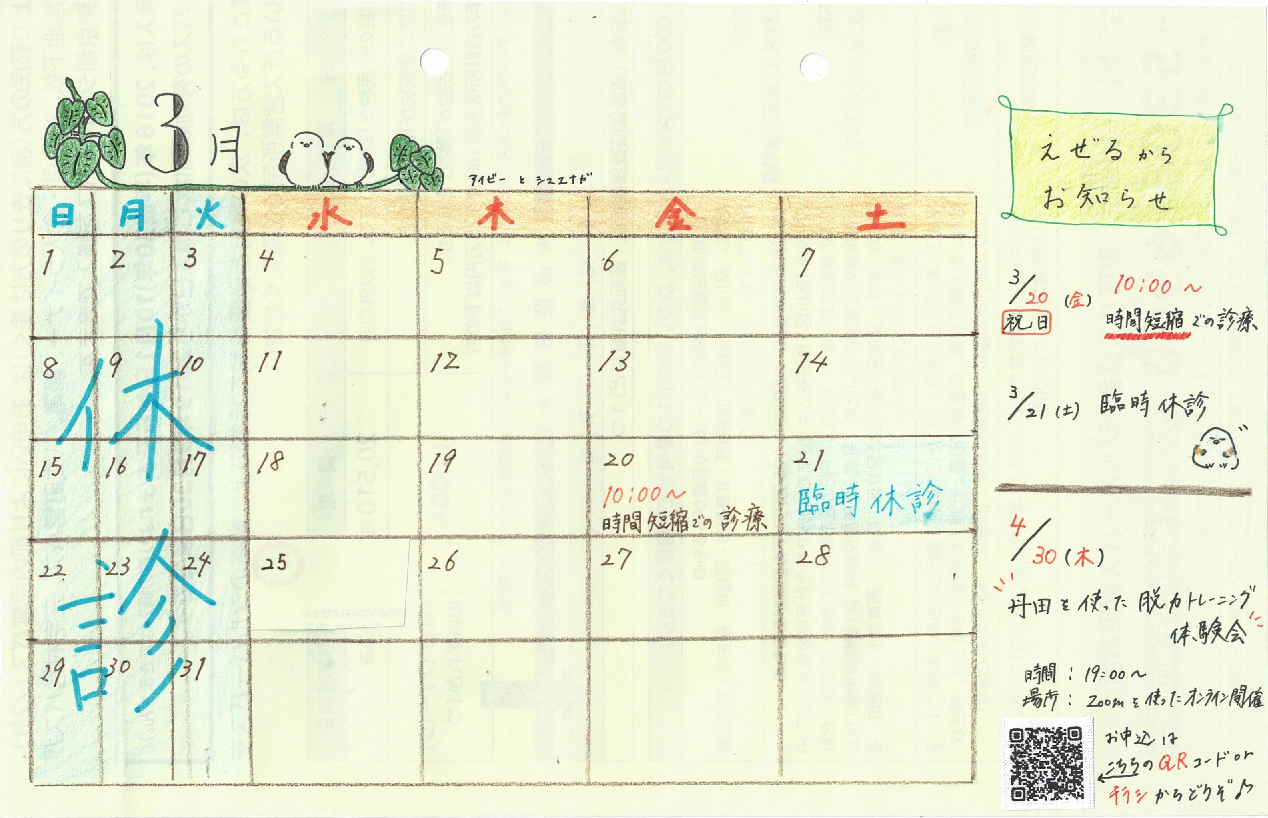 3月
アイビー と シマエナガ
日 月 火 水 木 金 土
1 2 3 4 5 6 7
8 9 10 11 12 13 14
15 16 17 18 19 20 21
10:00～
時間短縮での診療
臨時休診
22 23 24 25 26 27 28
29 30 31
休診
えぜるから
お知らせ
3/20(金) 10:00～
祝日 時間短縮での診療
3/21(土) 臨時休診
4/30(木)
丹田を使った脱力トレーニング
体験会
時間：19:00～
場所：Zoomを使ったオンライン開催
お申込は
こちらのQRコードor
チラシからどうぞ♪